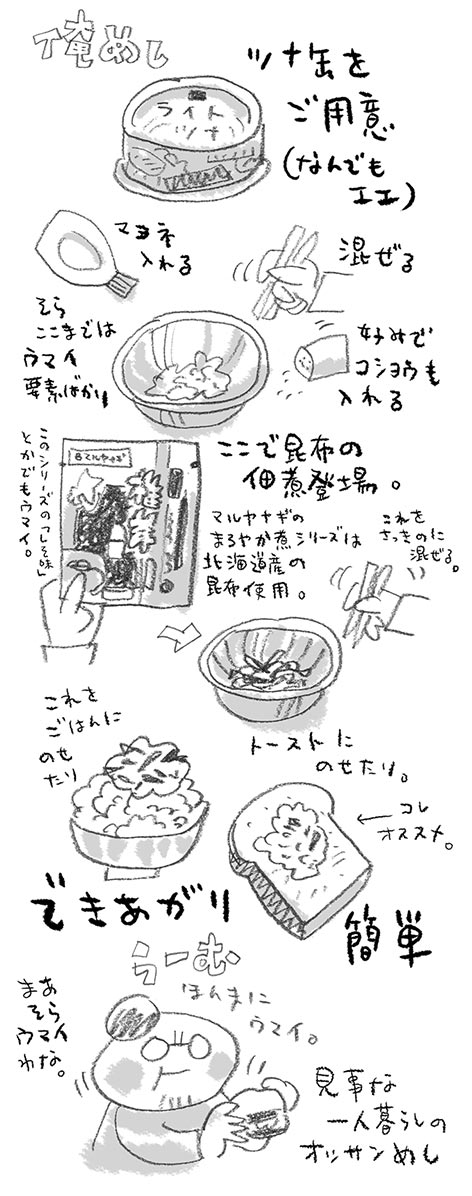 俺めし
ツナ缶を
ご用意
(なんでも
エエ)
ライト
ツナ
マヨネ
入れる
混ぜる
そら
ここまでは
ウマイ
要素ばかり
好みで
コショウも
入れる
ここで昆布の
佃煮登場。
マルヤナギ
このシリーズの「しそ味」
とかでもウマイ。
マルヤナギの
まろやか煮シリーズは
北海道産の
昆布使用。
これを
さっきのに
混ぜる。
これを
ごはんに
のせ
たり
トーストに
のせたり。
コレ
オススメ。
できあがり
簡単
らーむ
ほんまに
ウマイ。
まあ
そら
ウマイ
わな。
見事な
一人暮らしの
オッサンめし